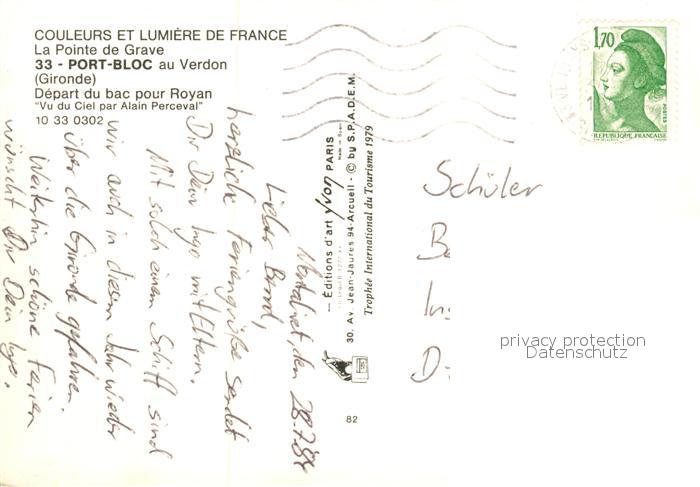 COULEURS ET LUMIÈRE DE FRANCE
La Pointe de Grave
33 - PORT-BLOC au Verdon
(Gironde)
Départ du bac pour Royan
"Vu du Ciel par Alain Perceval"
10 33 0302
den 28.7.84
Lieber Bernd,
herzliche Feriengrüße sendet
Dir Dein Ingo mit Eltern.
Mit solch einem Schiff sind
wir auch in diesem Jahr wieder
über die Gironde gefahren.
Weiterhin schöne Ferien
wünscht Dir Dein Ingo.
— Éditions d'art yvon PARIS
Made in Spain
30, Av. Jean-Jaurès 94-Arcueil - © by S.P.A.D.E.M.
Trophée International du Tourisme 1979
82
1,70
POSTES
REPUBLIQUE FRANÇAISE
Schüler
B
In
D
privacy protection
Datenschutz